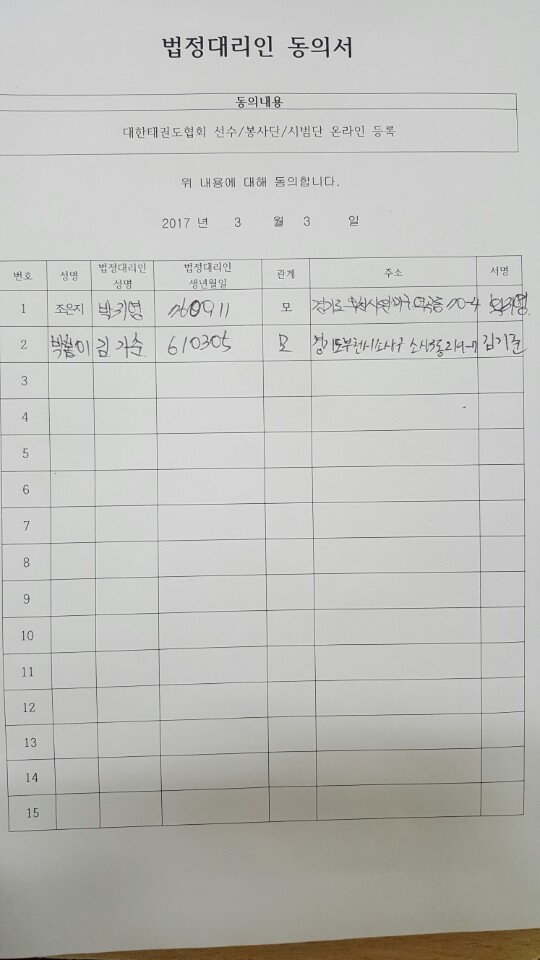 법정대리인 동의서
동의내용
대한태권도협회 선수/봉사단/시범단 온라인 등록
위 내용에 대해 동의합니다.
2017 년 3 월 3 일
번호 성명 법정대리인 성명 법정대리인 생년월일 관계 주소 서명
1 조은지 박기영 760911 모 경기도
2 김기순 610305 모 경기도 부천시 소사구
3
4
5
6
7
8
9
10
11
12
13
14
15